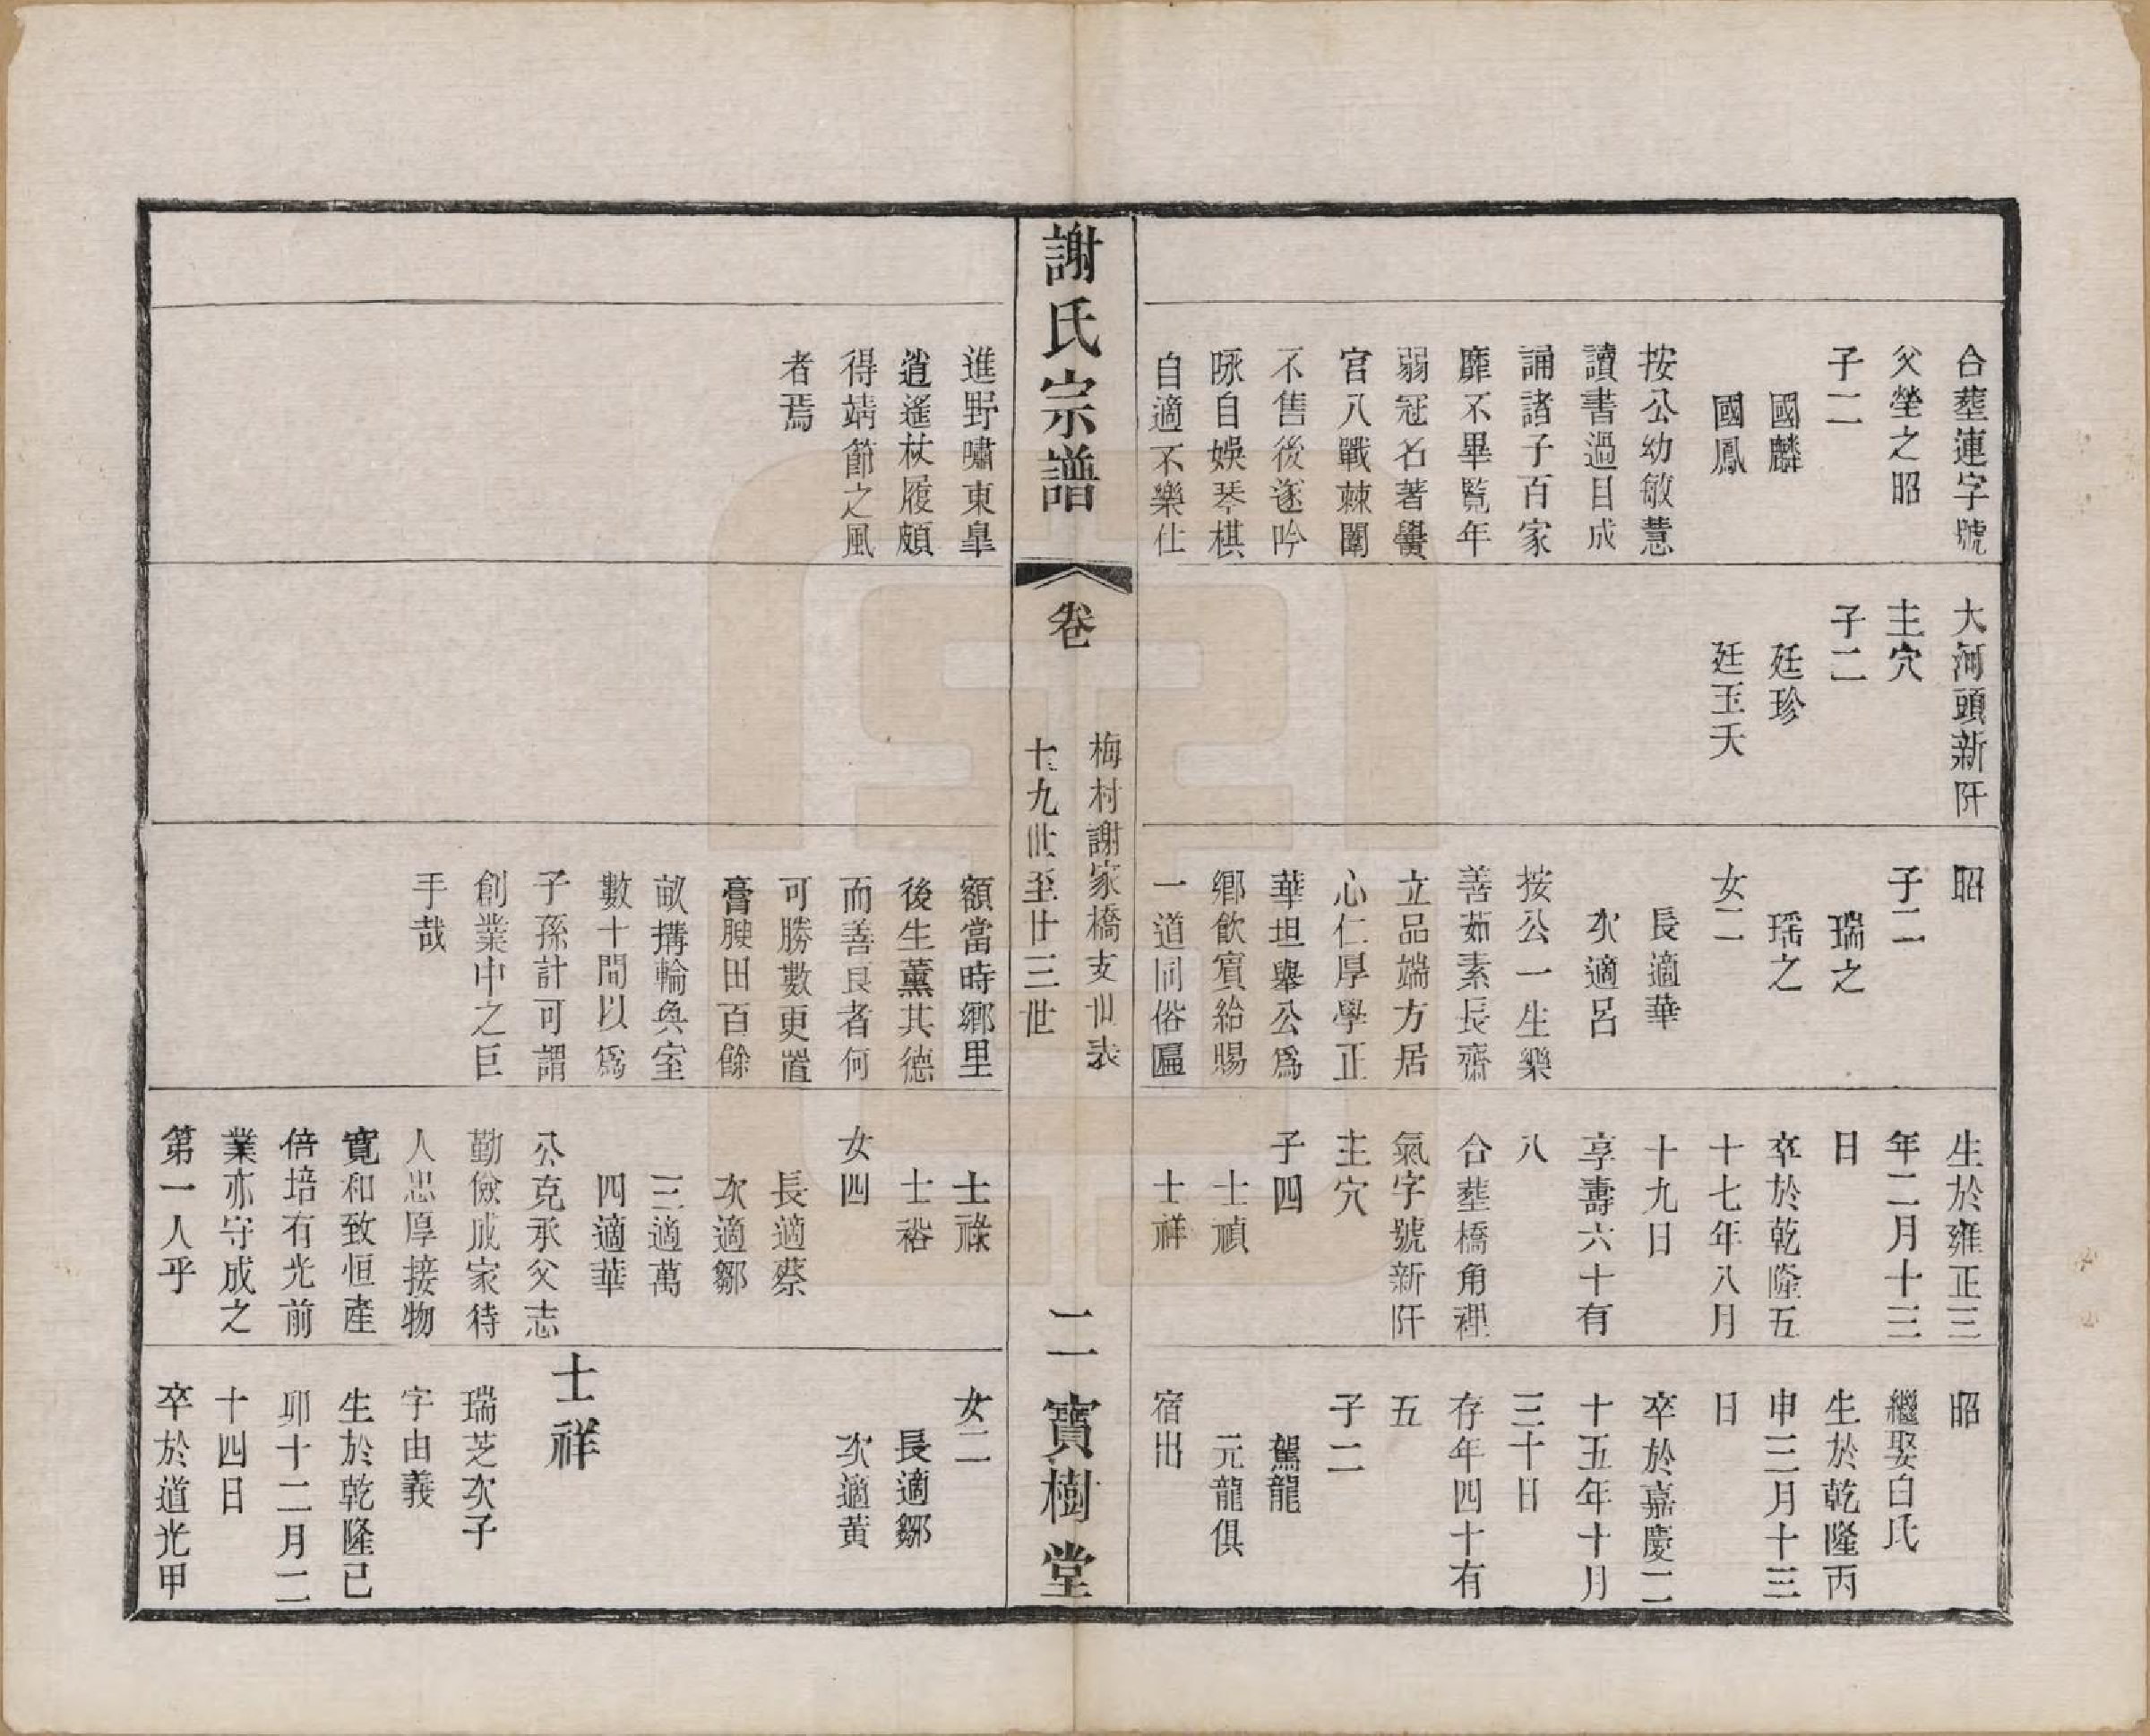 合塟連字號
父塋之昭
子二
國麟
國鳳
按公幼敏慧
讀書過目成
誦諸子百家
靡不畢覧年
弱冠名著黌
宫八戰棘闈
不售後遂吟
咏自娛琴棋
自適不樂仕
大河頭新阡
主穴
子二
廷珍
廷玉夭
昭
子二
瑞之
瑶之
女二
長適華
次適呂
按公一生樂
善茹素長齋
立品端方居
心仁厚學正
華坦舉公爲
鄉飲賓給賜
一道同俗匾
生於雍正三
年二月十三
日
卒於乾隆五
十七年八月
十九日
享壽六十有
八
合塟橋角裡
氣字號新阡
主穴
子四
士禎
士祥
昭
繼娶白氏
生於乾隆丙
申三月十三
日
卒於嘉慶二
十五年十月
三十日
存年四十有
五
子二
駕龍
元龍俱
宿出
謝氏宗譜
卷
梅村謝家橋支世表
十九世至廿三世
二
寶樹堂
進野嘯東臯
逍遙杖履頗
得靖節之風
者焉
額當時鄉里
後生薰其德
而善良者何
可勝數更置
膏腴田百餘
畝搆輪奐室
數十間以爲
子孫計可謂
創業中之巨
手哉
士祿
士裕
女四
長適蔡
次適鄒
三適萬
四適華
公克承父志
勤儉成家待
人忠厚接物
寬和致恒產
倍培有光前
業亦守成之
第一人乎
女二
長適鄒
次適黄
士祥
瑞芝次子
字由義
生於乾隆己
卯十二月二
十四日
卒於道光甲